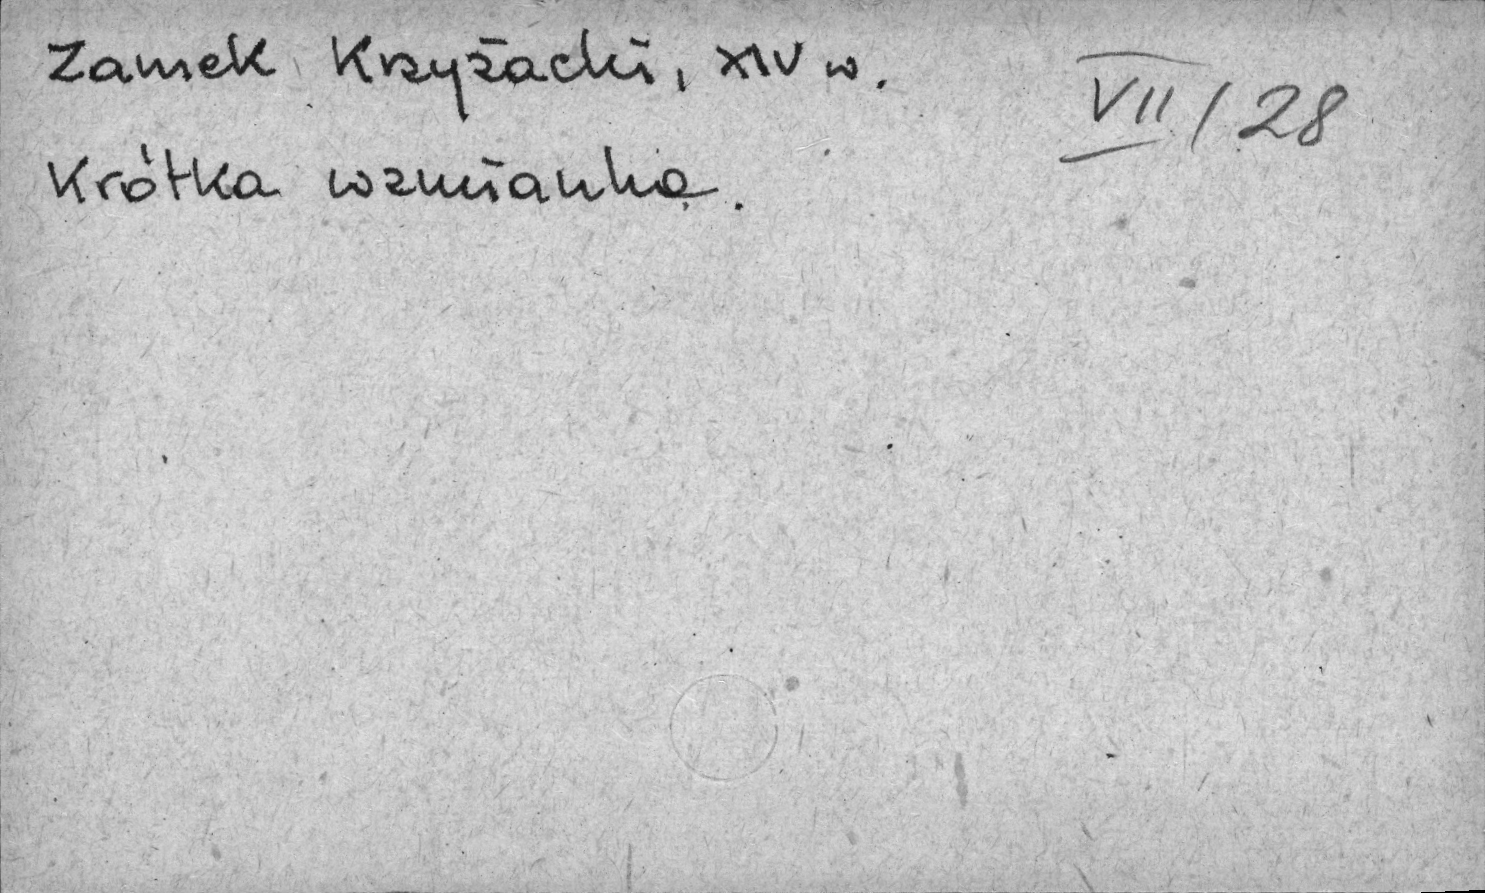 Zamek Krzyżacki, XIV w.
VII / 28
Krótka wzmianka.